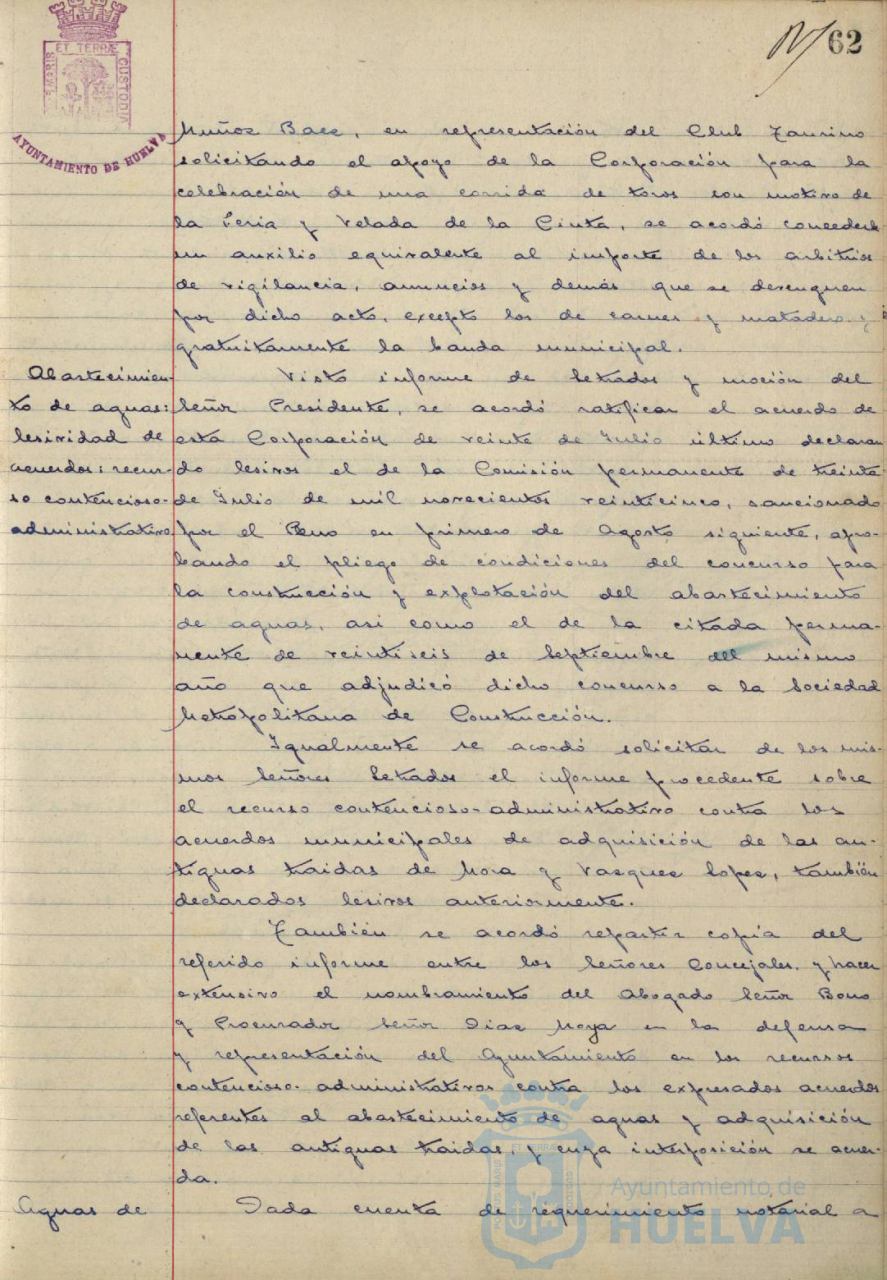 62
ET TERRÆ
CUSTODIA
AYUNTAMIENTO DE HUELVA
Muñoz Baez, en representación del Club Taurino
solicitando el apoyo de la Corporación para la
celebración de una corrida de toros con motivo de
la Feria y Velada de la Cinta, se acordó concederle
un auxilio equivalente al importe de los arbitrios
de vigilancia, anuncios y demás que se devenguen
por dicho acto, excepto los de carnes y matadero y
gratuitamente la banda municipal.
Abastecimien-
to de aguas:
lesividad de
acuerdos: recur-
so contencioso-
administrativo
Visto informe de Letrados y moción del
Señor Presidente, se acordó ratificar el acuerdo de
esta Corporación de veinte de Julio último declaran
do lesivos el de la Comisión permanente de treinta
de Julio de mil novecientos veinticinco, sancionado
por el Pleno en primero de Agosto siguiente, apro-
bando el pliego de condiciones del concurso para
la construcción y explotación del abastecimiento
de aguas, asi como el de la citada perma-
nente de veintiseis de Septiembre del mismo
año que adjudicó dicho concurso a la Sociedad
Metropolitana de Construcción.
Igualmente se acordó solicitar de los mis-
mos Señores Letrados el informe procedente sobre
el recurso contencioso-administrativo contra los
acuerdos municipales de adquisición de las an-
tiguas traidas de Mora y Vazquez Lopez, también
declarados lesivos anteriormente.
También se acordó repartir copia del
referido informe entre los Señores Concejales. y hacer
extensivo el nombramiento del Abogado Señor Bono
y Procurador Señor Diaz Moya en la defensa
y representación del Ayuntamiento en los recursos
contencioso-administrativos contra los expresados acuerdos
referentes al abastecimiento de aguas y adquisición
de las antiguas traidas, y cuya interposición se acuer-
da.
Aguas de
Dada cuenta de requerimiento notarial a
Ayuntamiento de
HUELVA